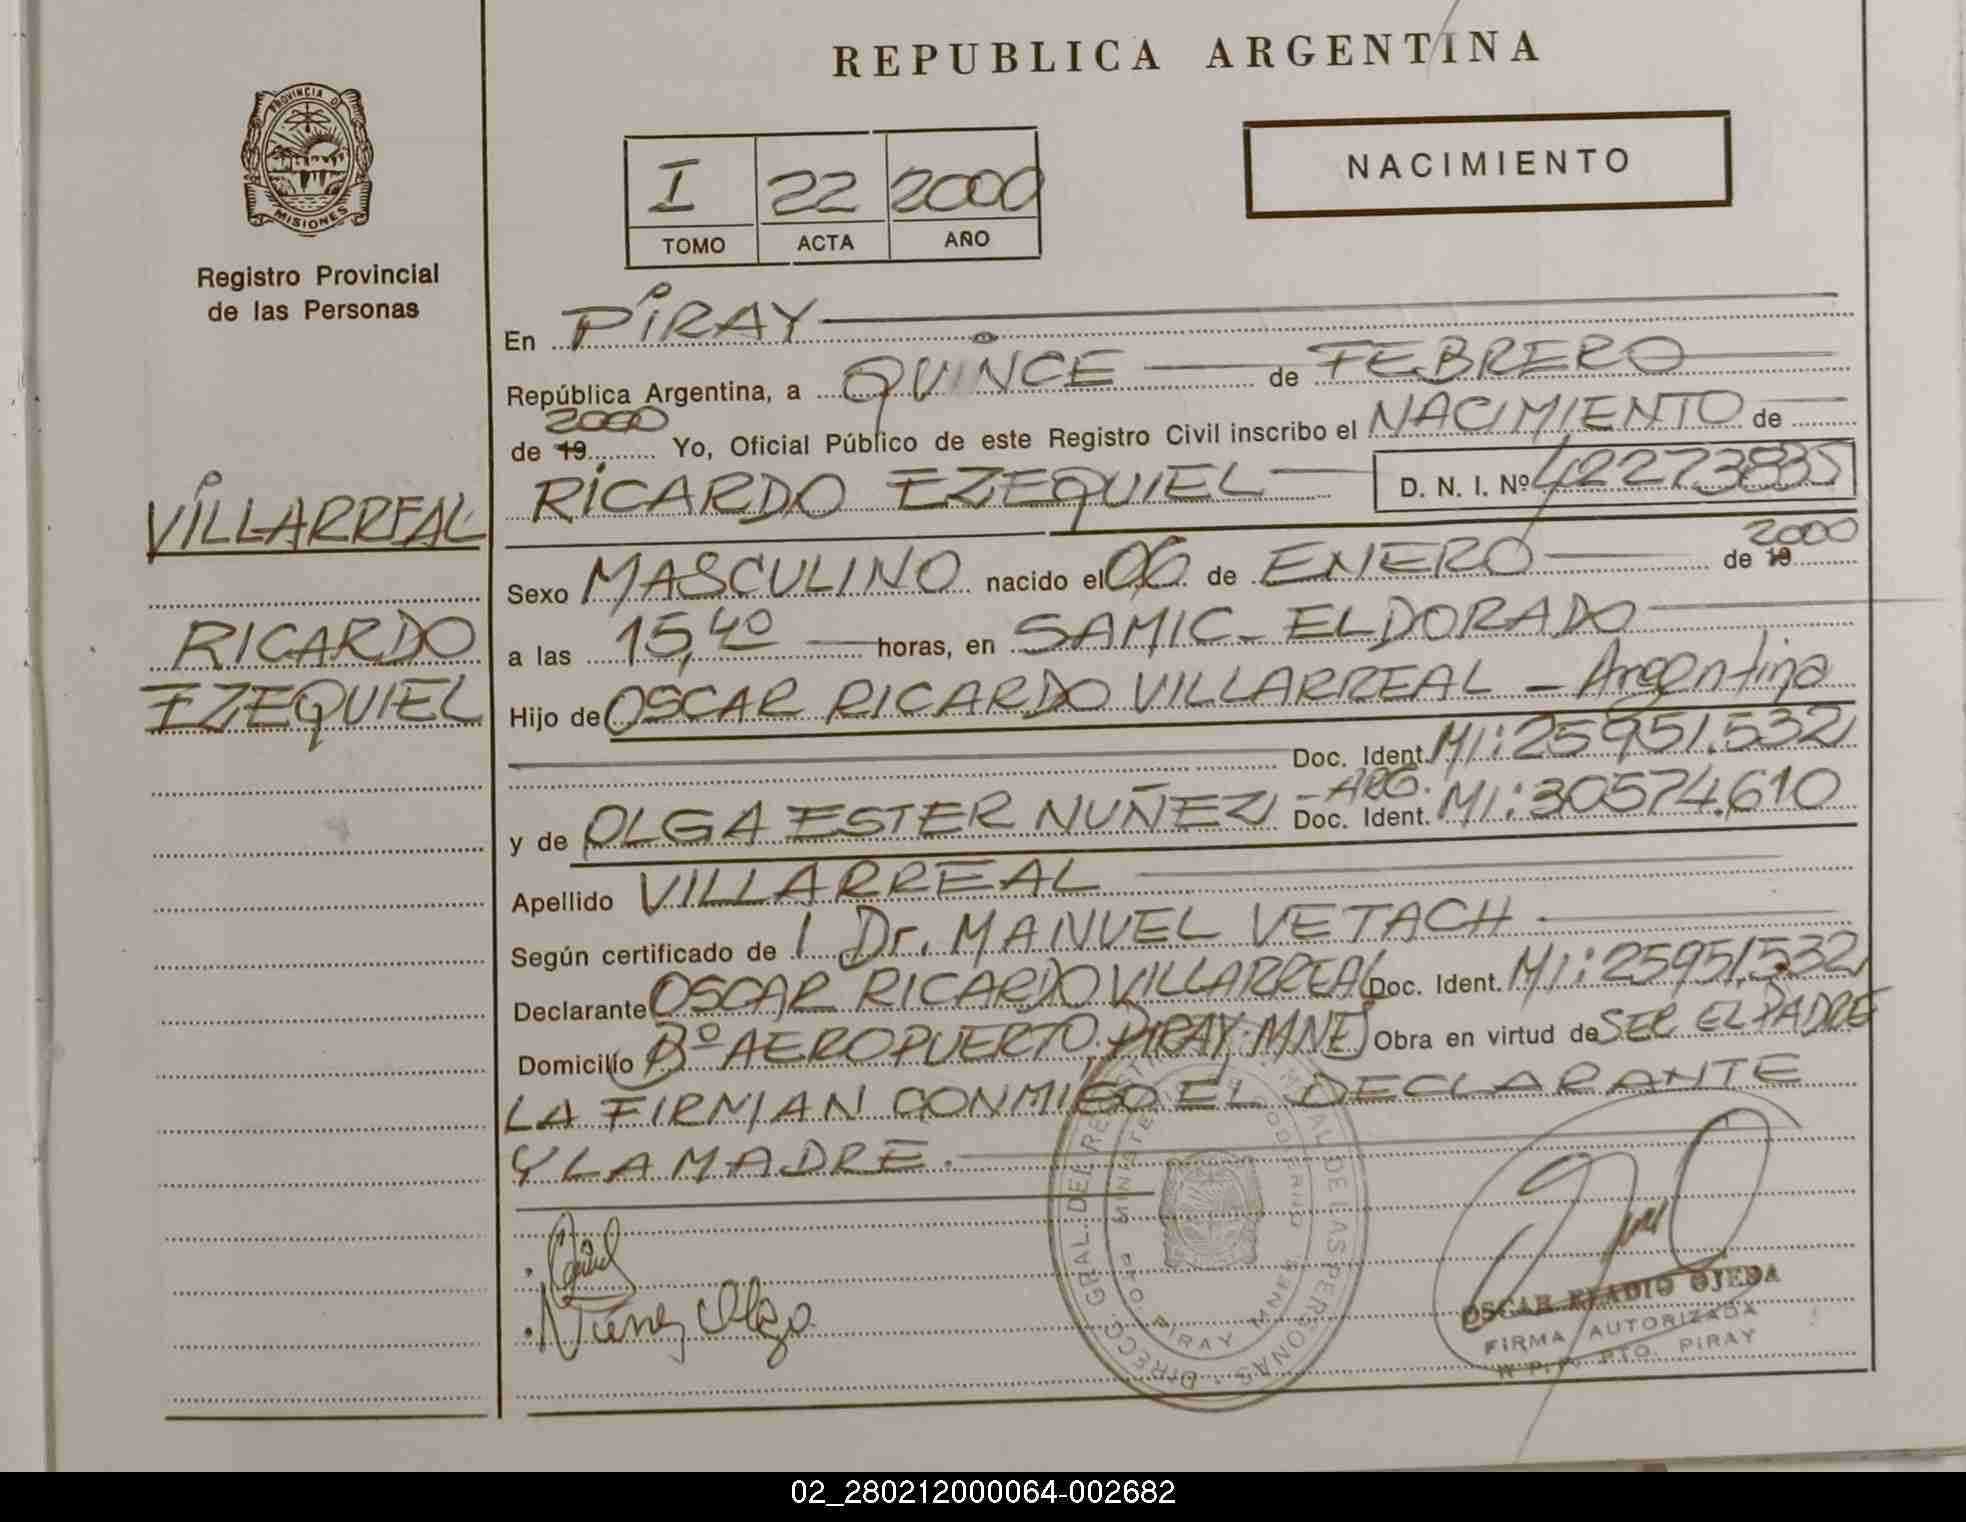 REPUBLICA ARGENTINA
PROVINCIA DE
MISIONES
Registro Provincial
de las Personas
NACIMIENTO
I 22 2000
TOMO ACTA AÑO
En PIRAY
República Argentina, a QUINCE de FEBRERO
de 19 2000 Yo, Oficial Público de este Registro Civil inscribo el NACIMIENTO de
RICARDO EZEQUIEL D. N. I. Nº 42273835
VILLARREAL
RICARDO
EZEQUIEL
Sexo MASCULINO nacido el 06 de ENERO de 19 2000
a las 15,40 horas, en SAMIC - ELDORADO
Hijo de OSCAR RICARDO VILLARREAL - Argentina
Doc. Ident. MI: 25951.532
y de OLGA ESTER NUÑEZ - ARG. Doc. Ident. MI: 30574.610
Apellido VILLARREAL
Según certificado de Dr. MANUEL VETACH
Declarante OSCAR RICARDO VILLARREAL Doc. Ident. MI: 25951.532
Domicilio Bº AEROPUERTO. PIRAY. MNES Obra en virtud de SER EL PADRE
LA FIRMAN CONMIGO EL DECLARANTE
Y LA MADRE.
Nuñez Olga
DIRECC. GRAL. DEL REGISTRO PROVINCIAL DE LAS PERSONAS
MINISTERIO DE GOBIERNO
PTO. PIRAY MNES.
OSCAR ELADIO OJEDA
FIRMA AUTORIZADA
R.P.P. PTO. PIRAY
02_280212000064-002682